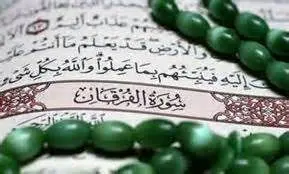 عَذَابٌ أَلِيمٌ
وَٱلْأَرْضِ قَدْ يَعْلَمُ مَآ أَنتُمْ
إِلَيْهِ فَيُنَبِّئُهُم بِمَا عَمِلُوا۟ وَٱللَّهُ بِكُلِّ شَىْءٍ
سُورَةُ الفُرْقَانِ